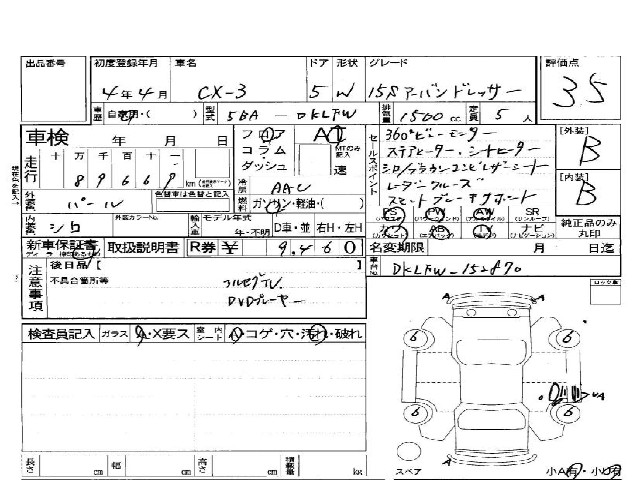 出品番号 初度登録年月 車名 ドア 形状 グレード 評価点
4年4月 CX-3 5 W 15Sアーバンドレッサー 3.5
車歴 自家用・( ) 型式 5BA-DKLFW 排気量 1500 cc 定員 5 人
車検 年 月 日 フロア コラム・ダッシュ AT MTのみ記入 速
走行 十 万 千 百 十 一
89669 km
冷房 AAC
外装色 パール 色替車は色替と記入 燃料 ガソリン・軽油・( )
内装色 シロ 外装カラーNo. 輸入車 モデル年式 年・不明 D車・並 右H・左H
新車保証書 取扱説明書 R券 ¥ 9,460
セールスポイント
360°ビューモニター
ステアヒーター・シートヒーター
シロ/ブラウンコンビレザーシート
レーダークルーズ
スマートブレーキサポート
PS PW AW SR (サンルーフ)
カワ AB TV ナビ (ナビゲーション)
[外装] B
[内装] B
純正品のみ丸印
名変期限 月 日迄
車台No. DKLFW-152870
注意事項 後日品 [
不具合箇所等
フルセグTV
DVDプレーヤー
検査員記入 ガラス A・X要ス 室内シート コゲ・穴・汚れ・破れ
ロック車
A A
6 6
6 6
A
スペア 小A有・小U有
長さ cm 幅 cm 高さ cm 積載量 kg